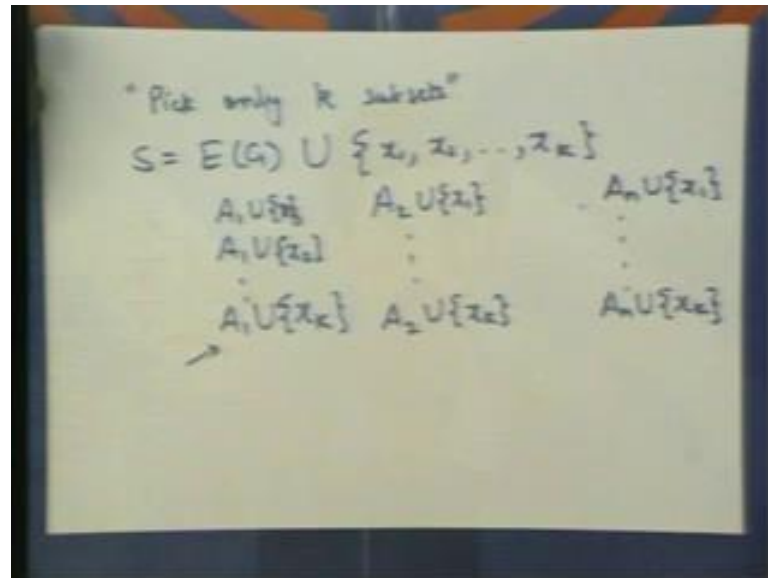 "Pick only k subsets"
S = E(G) ∪ {x₁, x₂, .., xₖ}
A₁∪{x₁} A₂∪{x₁} . Aₙ∪{x₁}
A₁∪{x₂] . :
. . .
A₁∪{xₖ} A₂∪{xₖ} Aₙ∪{xₖ}